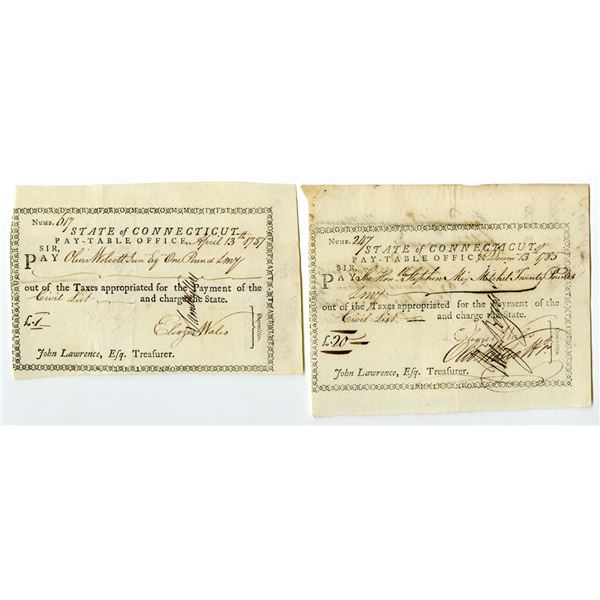 ORDER FROM COMMITTEE
NUMB. 617
STATE of CONNECTICUT.
PAY-TABLE OFFICE, April 13th 1787
SIR,
PAY Oliver Wolcott Jun Esq One Pound LMy
out of the Taxes appropriated for the Payment of the
Civil List and charge the State.
£1
Eleazr Wales
Committee.
John Lawrence, Esq. Treasurer.
NUMB. 247
STATE of CONNECTICUT.
PAY-TABLE OFFICE, Decem 13th 1785
SIR,
PAY The Hon. Stephen Mix Mitchel Twenty Pounds
LMy
out of the Taxes appropriated for the Payment of the
Civil List and charge the State.
£20
Eleazr Wales
Committee.
John Lawrence, Esq. Treasurer.